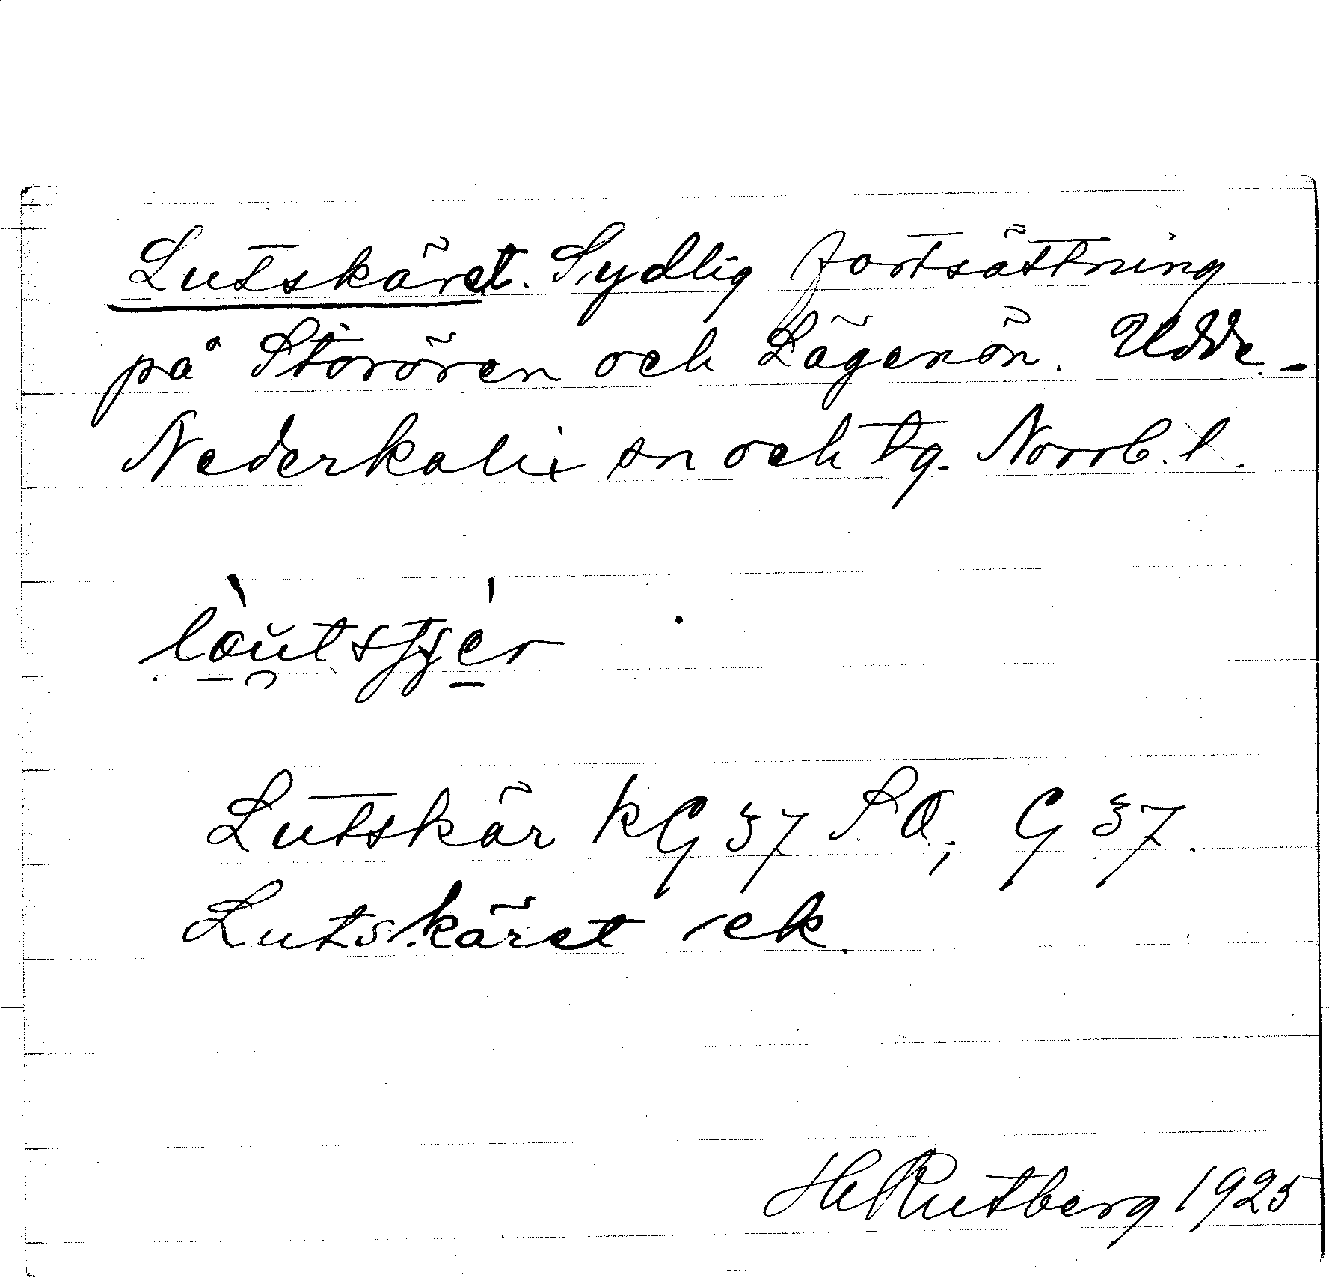 Lutskäret. Sydlig fortsättning
på Storören och Lågenön. Udde.
Nederkalix sn och tg. Norrb. l.
Lutskär kG 37 SO, G 37.
Lutskäret ek.
H Rutberg 1925